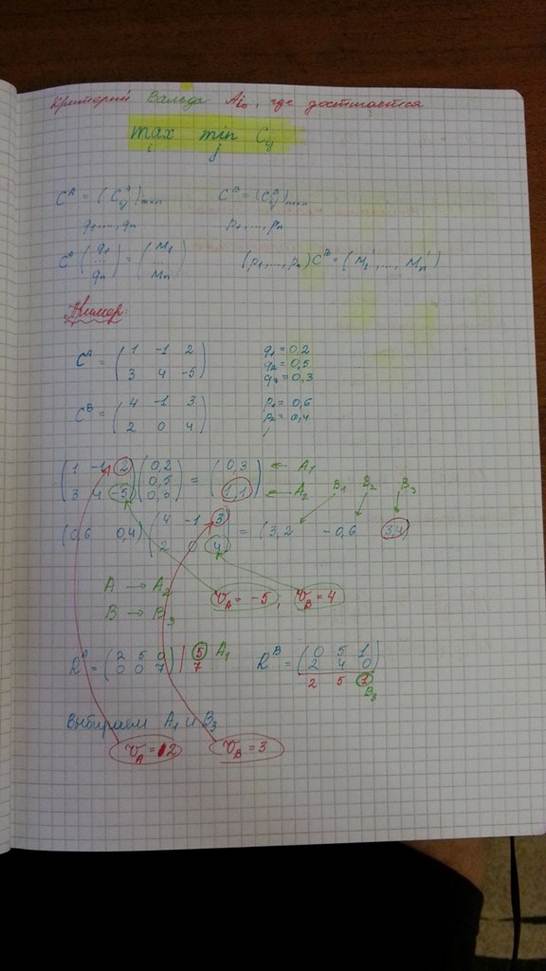 Критерий Вальда A_{i_0}, где достигается
max_i min_j C_{ij}
C^A = (C^A_{ij})_{m×n} C^B = (C^B_{ij})_{m×n}
q_1,...,q_n p_1,...,p_n
C^A (q_1 ... q_n) = (M_1 ... M_n) (p_1,...,p_n) C^B = (M_1',...,M_n')
Пример:
C^A = (1 -1 2 q_1 = 0,2
3 4 -5) q_2 = 0,5
q_3 = 0,3
C^B = (4 -1 3 p_1 = 0,6
2 0 4) p_2 = 0,4
(1 -1 2 (0,2 = (0,3 ← A_1
0,5
3 4 -5) 1,1) ← A_2 B_1 B_2 B_3
(0,6 0,4) (4 -1 3 = (3,2 -0,6 3,4)
2 0 4)
A → A_2 V_A = -5, V_B = 4
B → B_3
R^A = (2 5 0 | 5 A_1 R^B = (0 5 1
0 0 7) | 7 2 4 0)
2 5 1
B_3
Выбираем A_1 и B_3
V_A = 2 V_B = 3